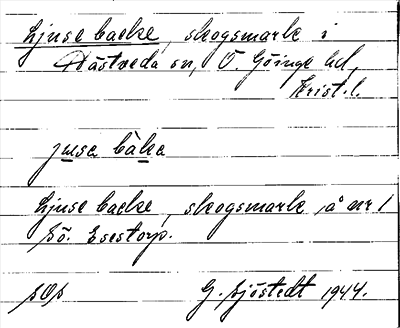 Ljuse backe, skogsmark i
Hästveda sn, Ö. Göinge hd,
Krist. l.
jusa baka
Ljuse backe, skogsmark å nr 1
Sö. Esestorp.
SOS G. Sjöstedt 1944.